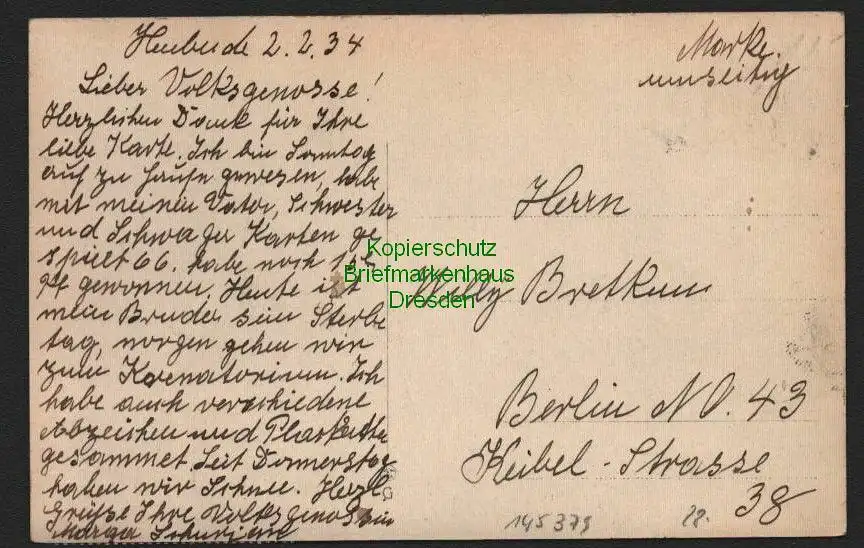 Heubude 2.2.34
Lieber Volksgenosse!
Herzlichen Dank für Ihre
liebe Karte. Ich bin Sonntag
auf zu Hause gewesen, habe
mit meinen Vater, Schwester
und Schwager Karten ge
spielt 66. habe noch
Pf gewonnen. Heute ist
mein Bruder sein Sterbe
tag, morgen gehen wir
zum Krematorium. Ich
habe auch verschiedene
Abzeichen und
gesammet Seit Donnerstag
haben wir Schnee. Herzl
Grüße Ihre Volksgenossin
Marga
Marke
umseitig
Herrn
Willy Bretkum
Berlin NO. 43
Keibel-Strasse
38
145379
28.
Kopierschutz
Briefmarkenhaus
Dresden